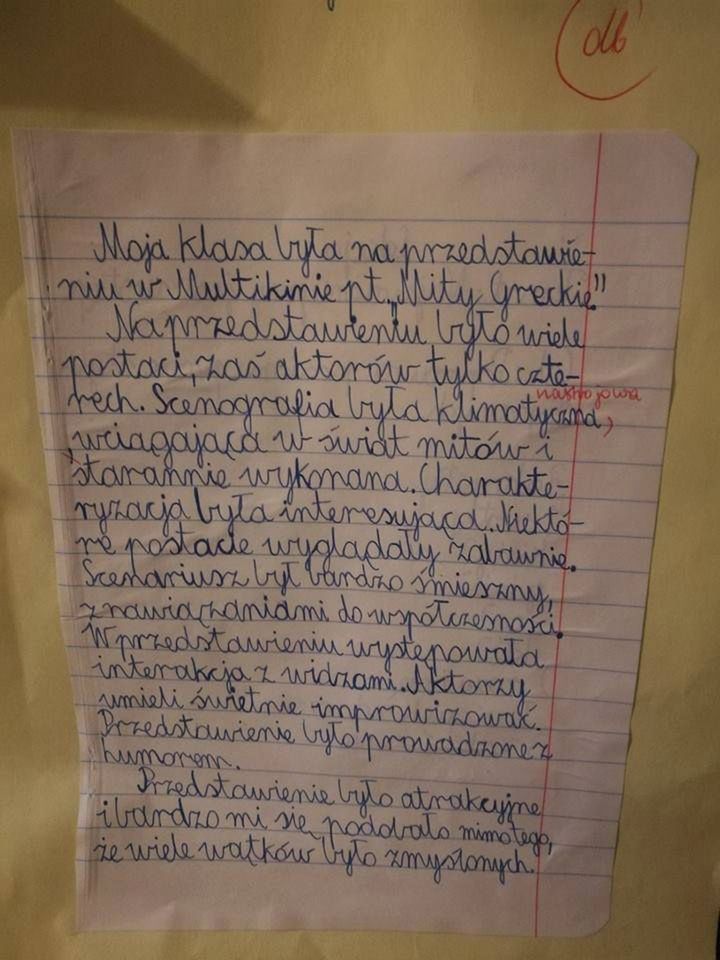 db
Moja klasa była na przedstawie-
niu w Multikinie pt. „Mity Greckie".
Na przedstawieniu było wiele
postaci, zaś aktorów tylko czte-
nastrojowa
rech. Scenografia była klimatyczna,
wciągająca w świat mitów i
starannie wykonana. Charakte-
ryzacja była interesująca. Niektó-
re postacie wyglądały zabawnie.
Scenariusz był bardzo śmieszny,
z nawiązaniami do współczesności.
W przedstawieniu występowała
interakcja z widzami. Aktorzy
umieli świetnie improwizować.
Przedstawienie było prowadzone z
humorem.
Przedstawienie było atrakcyjne
i bardzo mi się podobało mimo tego,
że wiele wątków było zmyślonych.